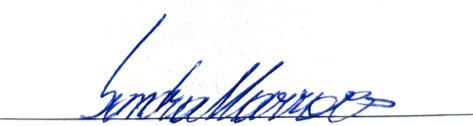 Sandra Marroco